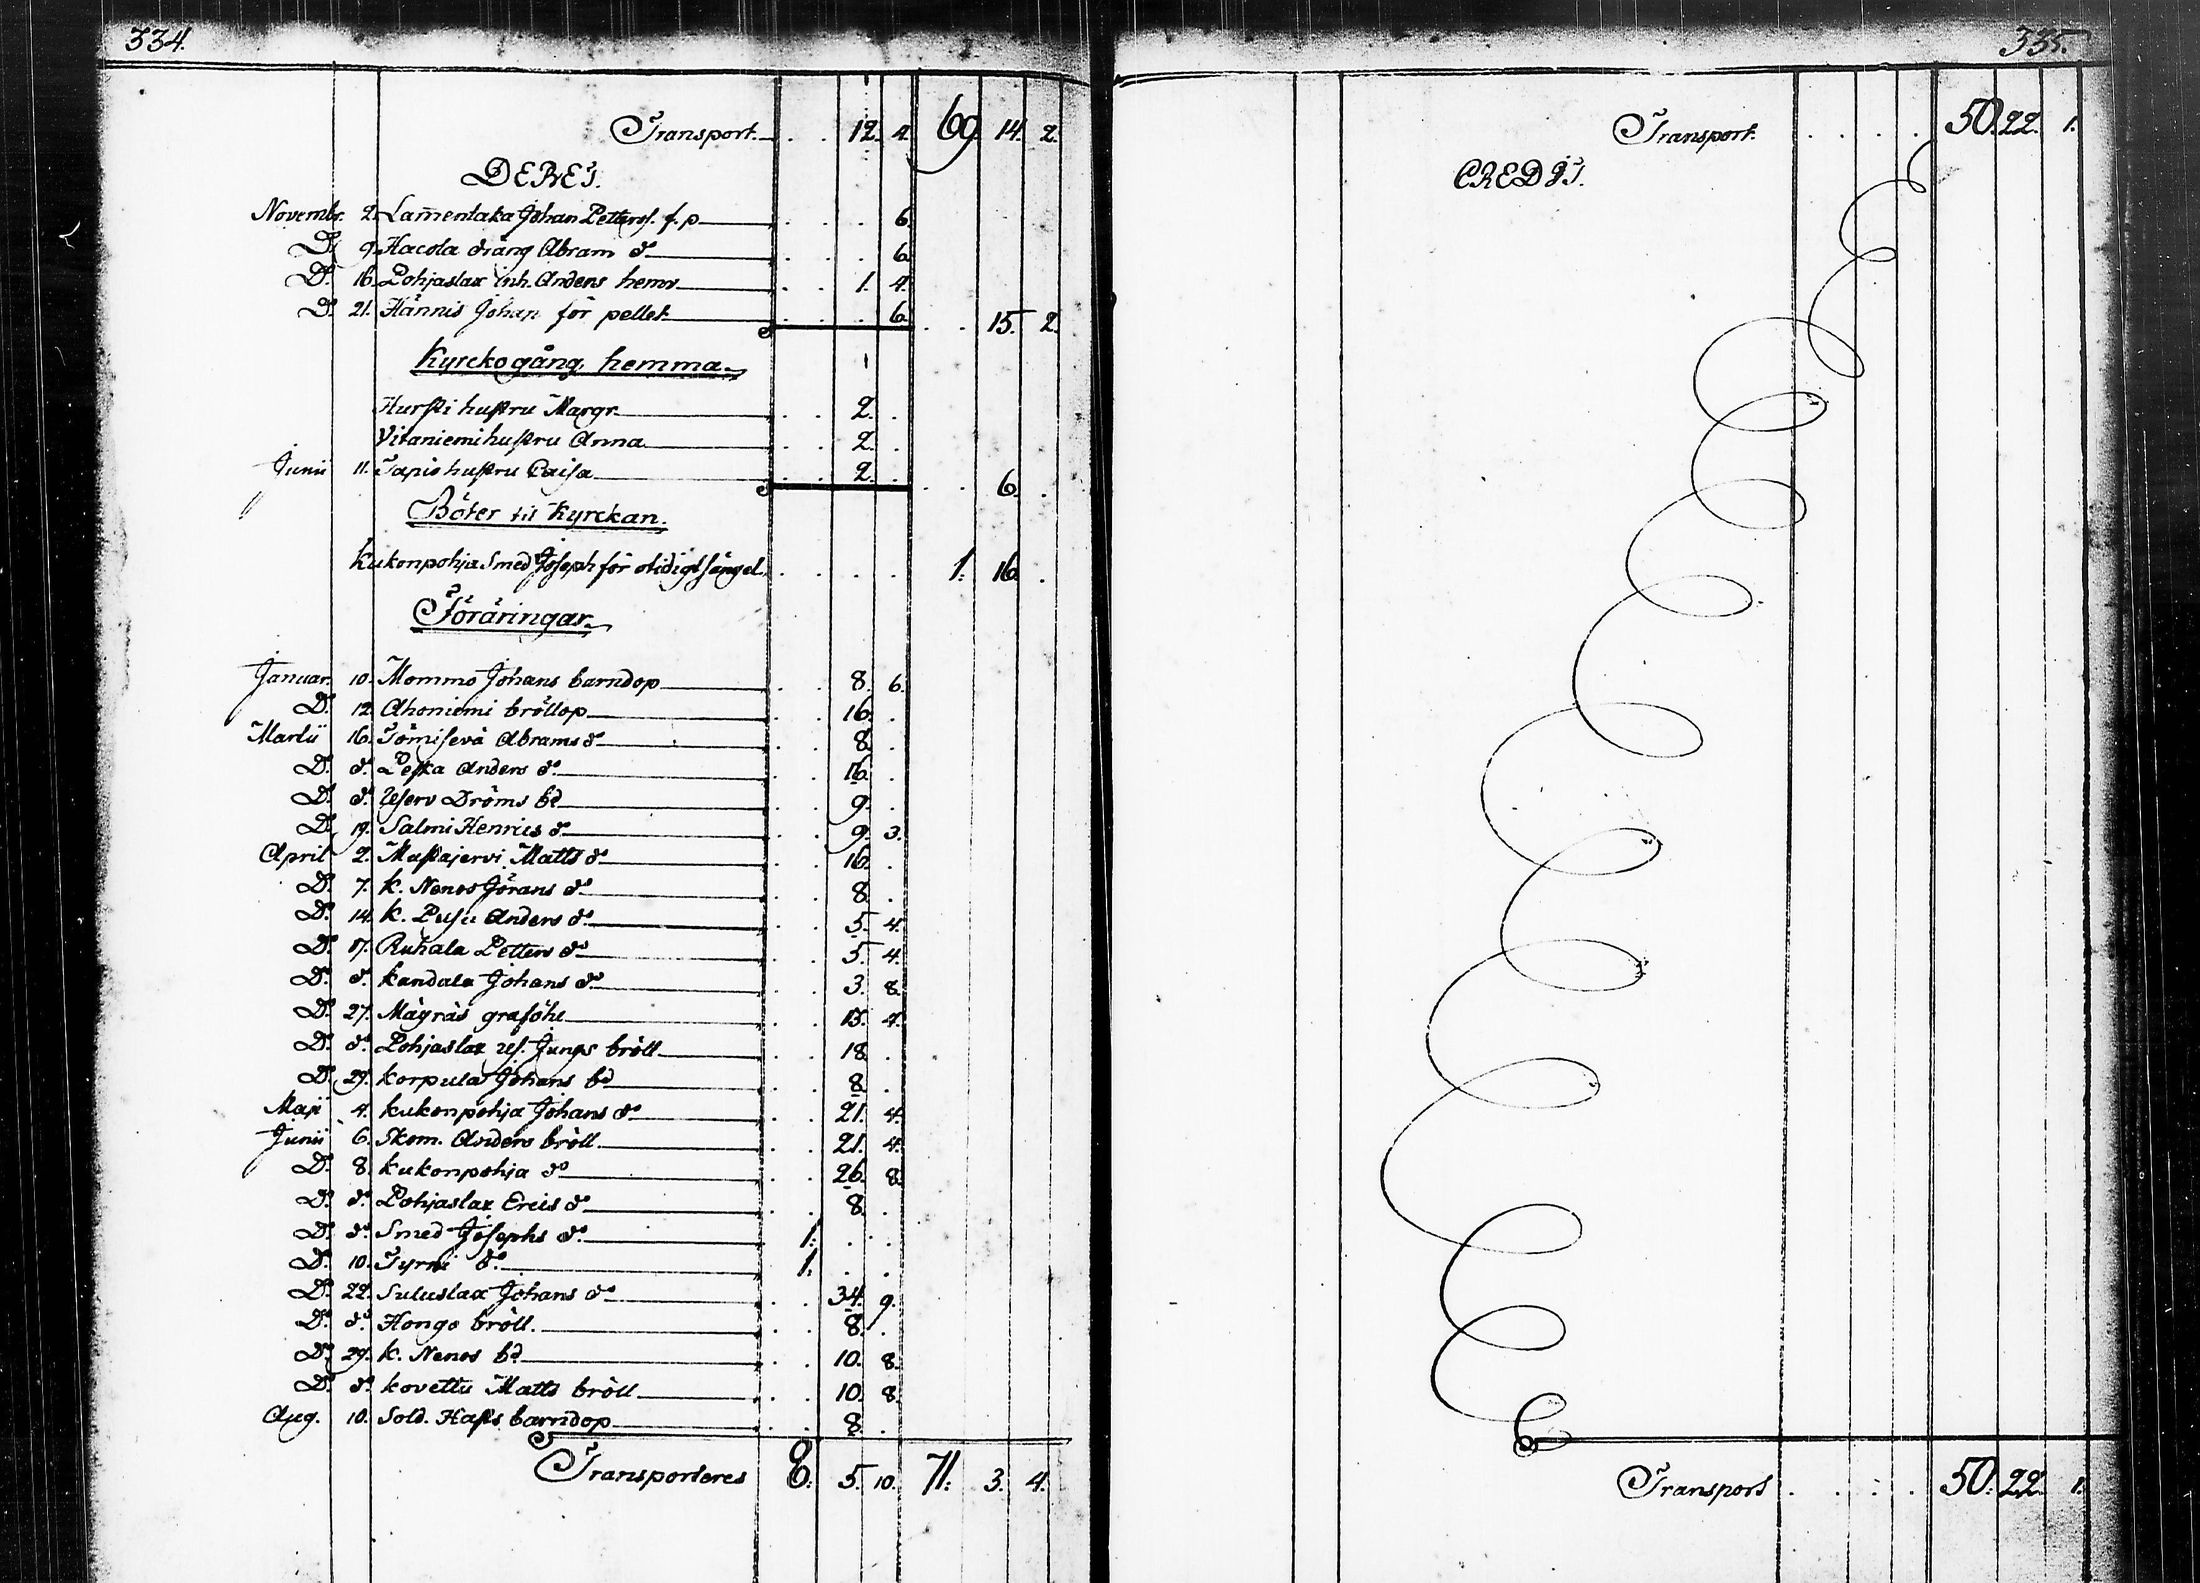 334.
Transport. . . 12. 4. 69. 14. 2.
DEBET.
Novembr. 2. Lam̄entaka Johan Petterss. f. p . . . 6.
D:o 9. Hacola dräng Abram d:o . . . 6.
D:o 16. Pohjaslax inh. Anders hemv . . 1. 4.
D:o 21. Hännis Johan för pellet . . . 6. . . 15. 2.
Kyrckogång hemma.
Hursti hustru Margr. . . 2. .
Vitaniemi hustru Anna . . 2. .
Junii 11. Tapio hustru Caisa . . 2. . . . 6. .
Böter til Kyrckan.
Kukonpohja Smed Joseph för otidigt sängel. . . . . 1. 16. .
Föräringar.
Januar. 10. Mommo Johans barndop . . 8. 6.
D:o 12. Ahoniemi bröllop . . 16. .
Martii 16. Tömisevä Abrams d:o . . 8. .
D:o d:o Peska Anders d:o . . 16. .
D:o d:o Userv Dröms bd . . 9. .
D:o 19. Salmi Henrics d:o . . 9. 3.
April 2. Mustajervi Matts d:o . . 16. .
D:o 7. K. Nenos Jörans d:o . . 8. .
D:o 14. K. Pusu Anders d:o . . 5. 4.
D:o 17. Ruhala Petters d:o . . 5. 4.
D:o d:o Kandala Johans d:o . . 3. 8.
D:o 27. Mägräs graföhl . . 13. 4.
D:o d:o Pohjaslax uf. Jungs bröll . . 18. .
D:o 29. Korpula Johans bd . . 8. .
Maji 4. Kukonpohja Johans d:o . . 21. 4.
Junii 6. Skom. Anders bröll. . . 21. 4.
D:o 8. Kukonpohja d:o . . 26. 8.
D:o d:o Pohjaslax Erics d:o . . 8. .
D:o d:o Smed Josephs d:o 1. . .
D:o 10. Tyrni d:o 1. . .
D:o 22. Suluslax Johans d:o . . 34. 9.
D:o d:o Hongo bröll. . . 8. .
D:o 29. K. Nenos bd . . 10. 8.
D:o d:o Kovettu Matts bröll . . 10. 8.
Aug. 10. Sold. Hasts barndop . . 8. .
Transporteres 8. 5. 10. 71. 3. 4.
335.
Transport. . . . . 50. 22. 1.
CREDIT.
Transport . . . . 50. 22. 1.